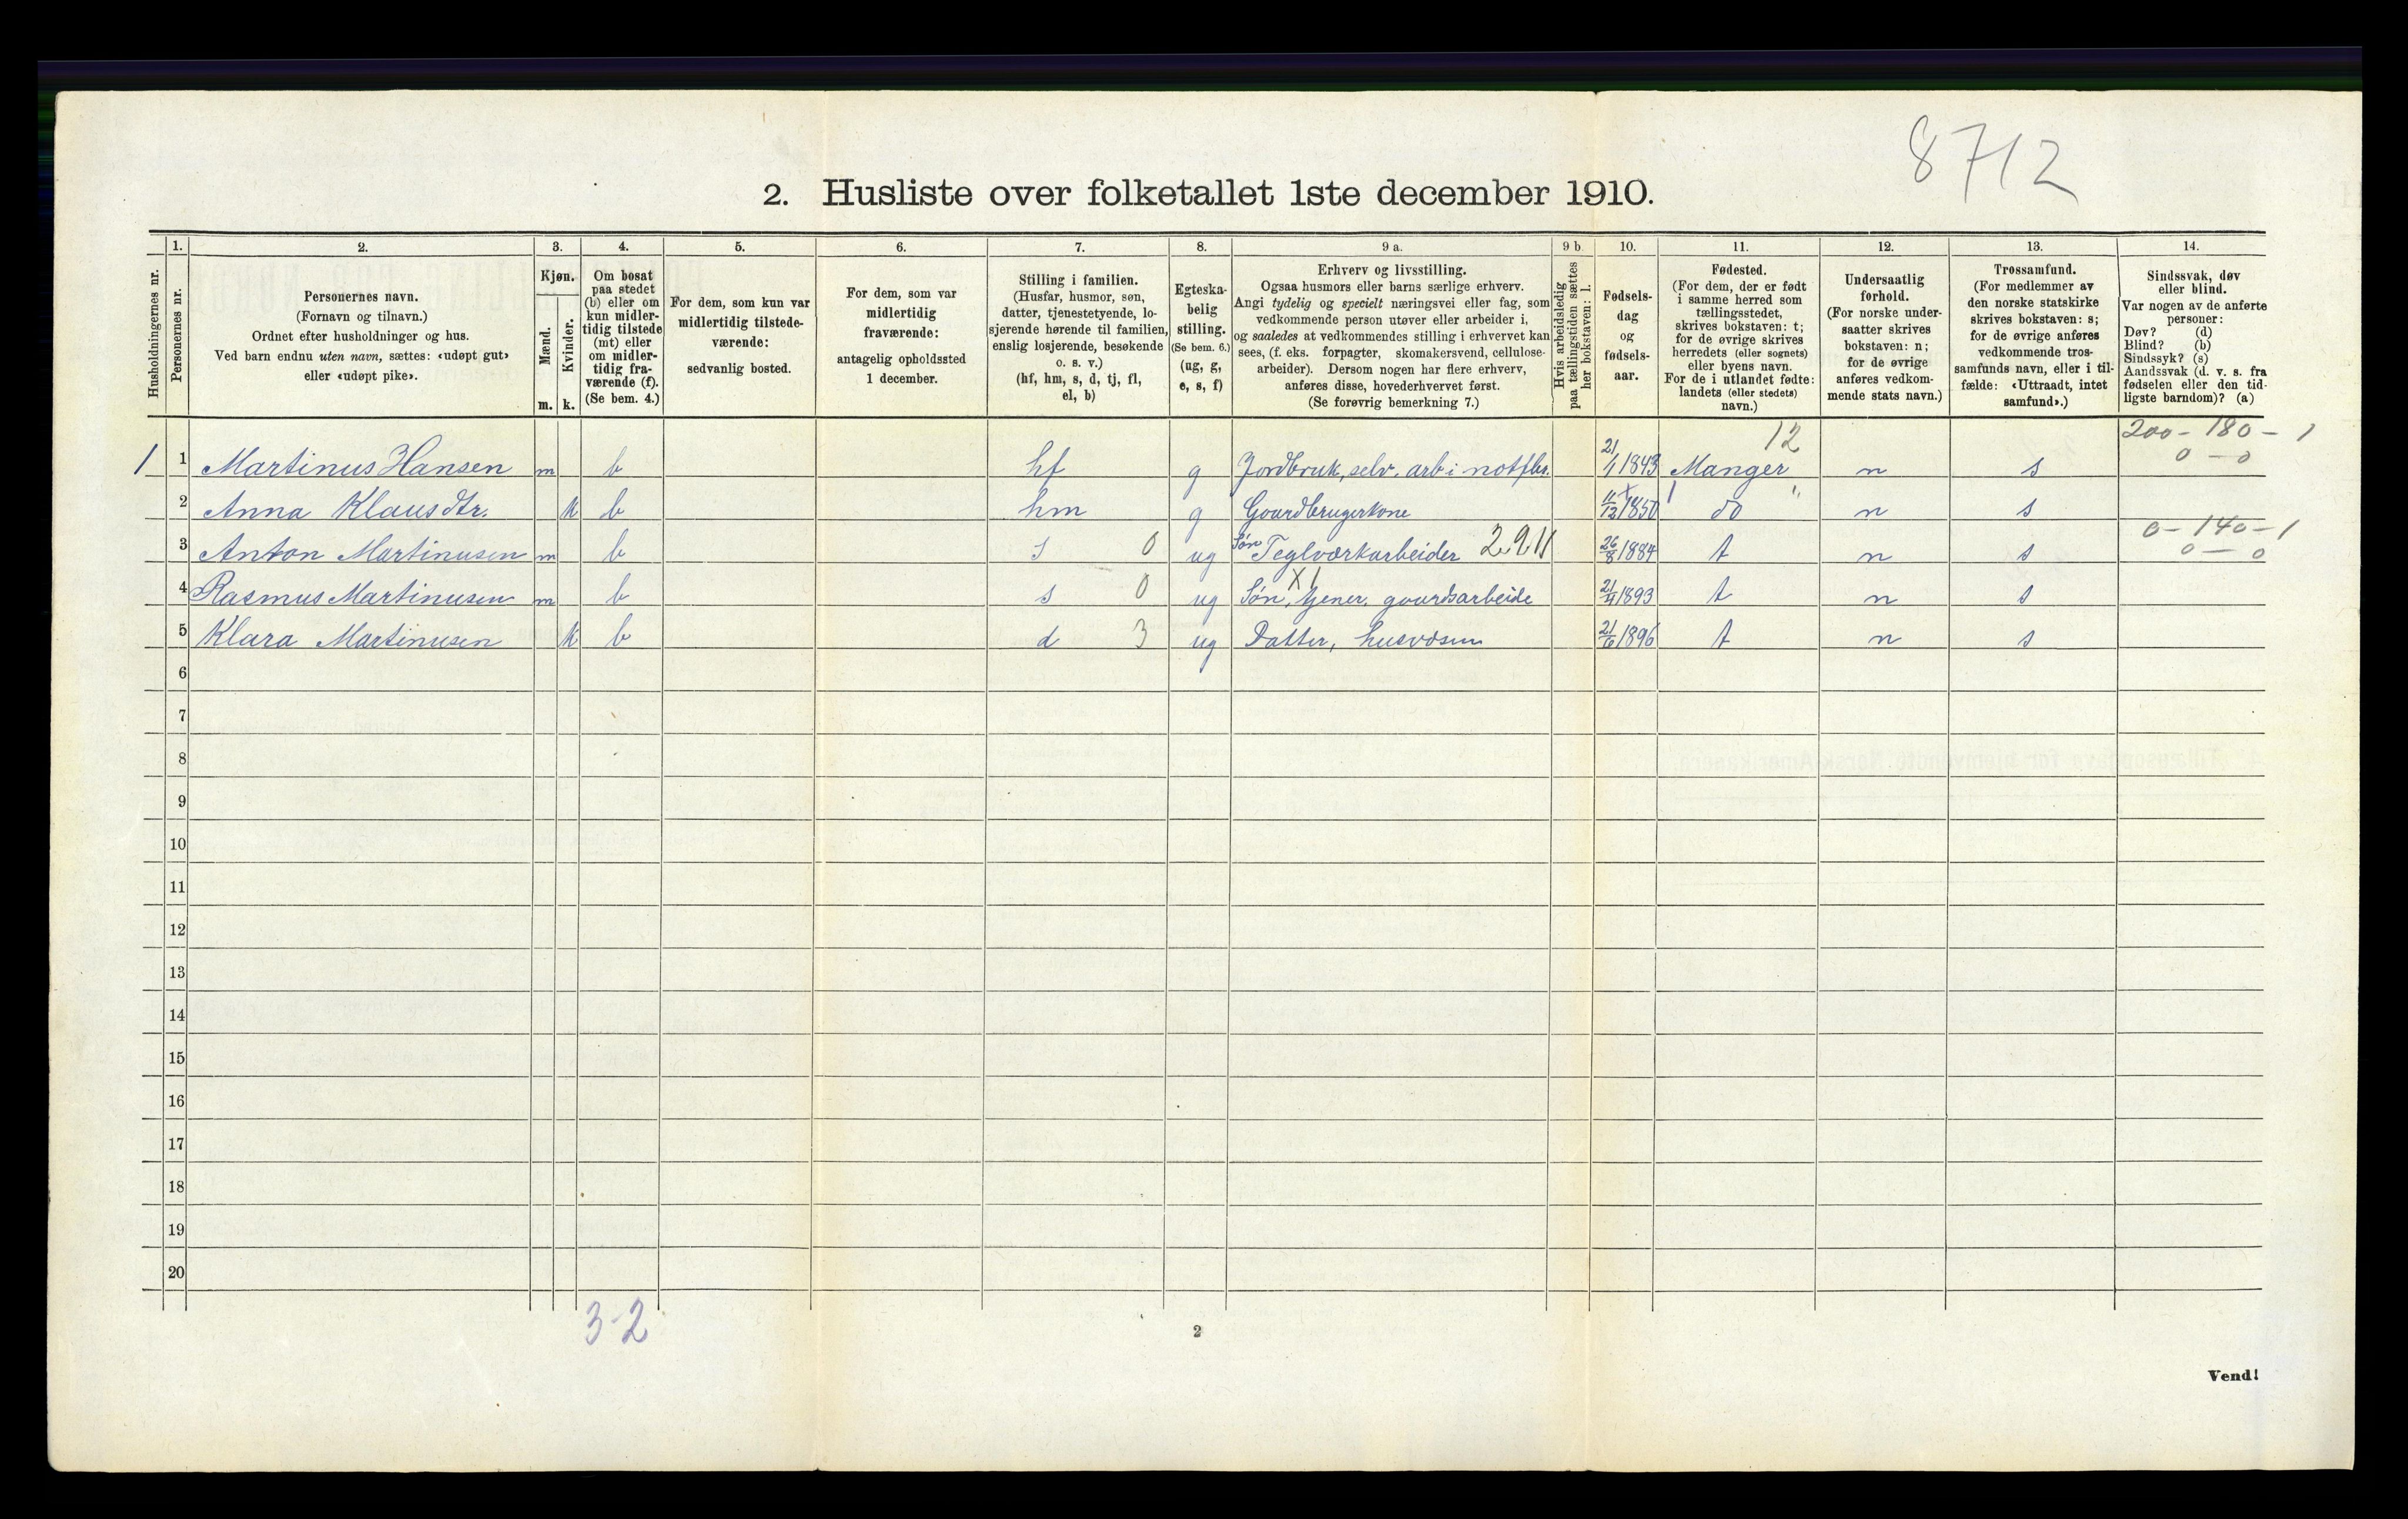 8712
2. Husliste over folketallet 1ste december 1910.
1. 2. 3. 4. 5. 6. 7. 8. 9 a. 9 b. 10. 11. 12. 13. 14.
Husholdningernes nr.
Personernes nr.
Personernes navn.
(Fornavn og tilnavn.)
Ordnet efter husholdninger og hus.
Ved barn endnu uten navn, sættes: «udøpt gut»
eller «udøpt pike».
Kjøn.
Mænd.
Kvinder.
m. k.
Om bosat
paa stedet
(b) eller om
kun midler-
tidig tilstede
(mt) eller
om midler-
tidig fra-
værende (f).
(Se bem. 4.)
For dem, som kun var
midlertidig tilstede-
værende:
sedvanlig bosted.
For dem, som var
midlertidig
fraværende:
antagelig opholdssted
1 december.
Stilling i familien.
(Husfar, husmor, søn,
datter, tjenestetyende, lo-
sjerende hørende til familien,
enslig losjerende, besøkende
o. s. v.)
(hf, hm, s, d, tj, fl,
el, b)
Egteska-
belig
stilling.
(Se bem. 6.)
(ug, g,
e, s, f)
Erhverv og livsstilling.
Ogsaa husmors eller barns særlige erhverv.
Angi tydelig og specielt næringsvei eller fag, som
vedkommende person utøver eller arbeider i,
og saaledes at vedkommendes stilling i erhvervet kan
sees, (f. eks. forpagter, skomakersvend, cellulose-
arbeider). Dersom nogen har flere erhverv,
anføres disse, hovederhvervet først.
(Se forøvrig bemerkning 7.)
Hvis arbeidsledig
paa tællingstiden sættes
her bokstaven: l.
Fødsels-
dag
og
fødsels-
aar.
Fødested.
(For dem, der er født
i samme herred som
tællingsstedet,
skrives bokstaven: t;
for de øvrige skrives
herredets (eller sognets)
eller byens navn.
For de i utlandet fødte:
landets (eller stedets)
navn.)
Undersaatlig
forhold.
(For norske under-
saatter skrives
bokstaven: n;
for de øvrige
anføres vedkom-
mende stats navn.)
Trossamfund.
(For medlemmer av
den norske statskirke
skrives bokstaven: s;
for de øvrige anføres
vedkommende tros-
samfunds navn, eller i til-
fælde: «Uttraadt, intet
samfund».)
Sindssvak, døv
eller blind.
Var nogen av de anførte
personer:
Døv? (d)
Blind? (b)
Sindssyk? (s)
Aandssvak (d. v. s. fra
fødselen eller den tid-
ligste barndom)? (a)
12 200 - 180 - 1
1 1 Martinus Hansen m b hf g Jordbruk, selv. arb i notfbr. 21/1 1843 Manger n s 0 - 0
2 Anna Klausdtr. k b hm g Gaardbrugerkone 11/12 1850 do " n s
0 - 140 - 1
3 Anton Martinusen m b s 0 ug Søn Teglværkarbeider 2911 26/8 1884 t n s 0 - 0
X 1
4 Rasmus Martinusen m b s 0 ug Søn, gener. gaardsarbeide 21/4 1893 t n s
5 Klara Martinusen k b d 3 ug Datter, husvæsen 21/6 1896 t n s
6
7
8
9
10
11
12
13
14
15
16
17
18
19
20
3-2
2
Vend!